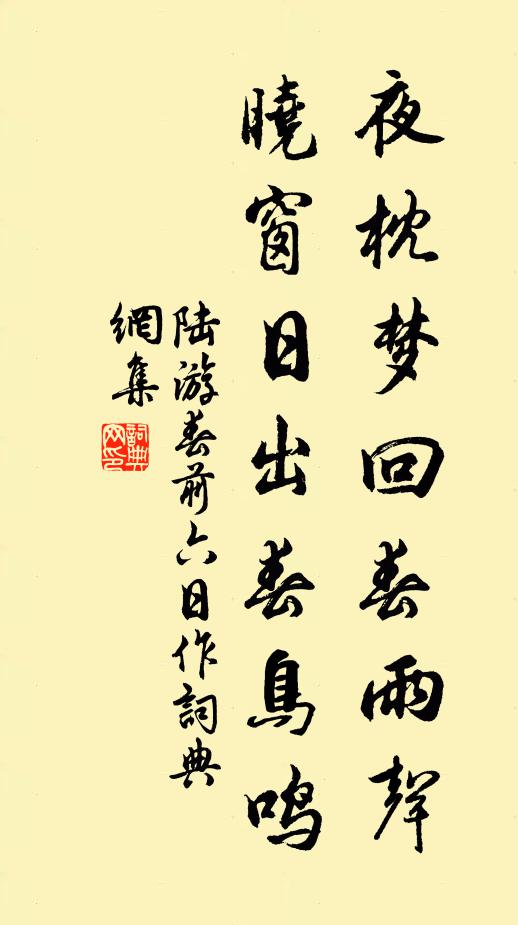 夜枕梦回春雨聲
曉窗日出春鳥鳴
陆游春前六日作詞典
網集
詞典
网印